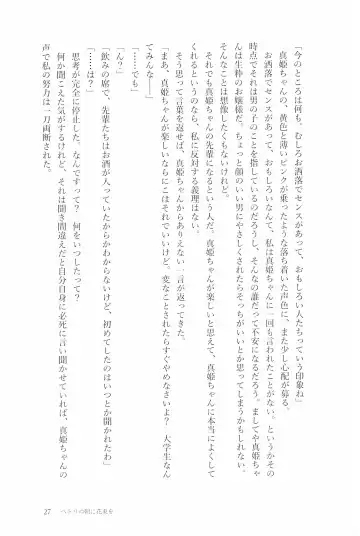 「今のところは何も。むしろお洒落でセンスがあって、おもしろい人たちっていう印象ね」
真姫ちゃんの、黄色と薄いピンクが乗ったような落ち着いた声色に、また少し心配が募る。
お洒落でセンスがあって、おもしろいなんて、私は真姫ちゃんに一回も言われたことがない。というかその
時点でそれは男の子のことを指しているのだろうし、そんなの誰だって不安になるだろう。ましてや真姫ちゃ
んは生粋のお嬢様だ。ちょっと顔のいい男にやさしくされたらそっちがいいとか思ってしまうかもしれない。
そんなことは想像したくもないけれど。
それでも真姫ちゃんの先輩になるという人だ。真姫ちゃんが楽しいと思えて、真姫ちゃんに本当によくして
くれるというのなら、私に反対する義理はない。
そう思って言葉を返せば、真姫ちゃんからありえない一言が返ってきた。
「まあ、真姫ちゃんが楽しいならにこはそれでいいけど。変なことされたらすぐやめなさいよ？　大学生なん
てみんな――」
「……でも」
「ん？」
「飲みの席で、先輩たちはお酒が入っていたからかわからないけど、初めてしたのはいつとか聞かれたわ」
「……は？」
思考が完全に停止した。なんですって？　何をいつしたって？
何か聞こえた気がするけれど、それは聞き間違えだと自分自身に必死に言い聞かせていれば、真姫ちゃんの
声で私の努力は一刀両断された。
27　ベトリの朝に花束を